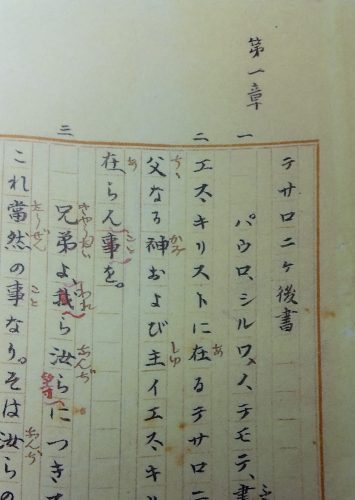 テサロニケ後書
第一章
一 パウロ、シルワノ、テモテ、書
二 エス、キリストに在るテサロニ
父なる神および主イエス、キリ
在らん事を。
三 兄弟よ、我ら汝らにつき
これ當然の事なり。そは汝らの